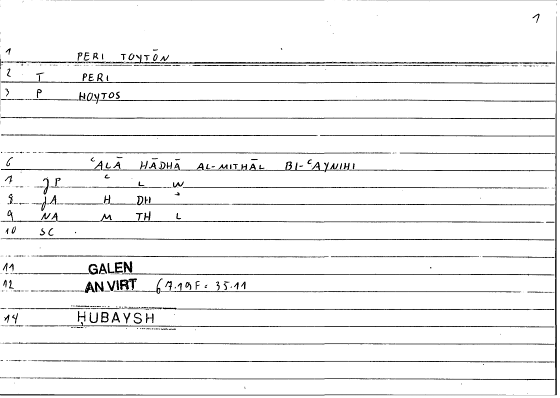 1
1 PERI TOYTŌN
2 T PERI
3 P HOYTOS
6 ᶜALĀ HĀDHĀ AL-MITHĀL BI-ᶜAYNIHI
7 JP ᶜ L W
8 JA H DH ʾ
9 NA M TH L
10 SC
11 GALEN
12 AN VIRT 67.19F = 35.11
14 ḤUBAYSH